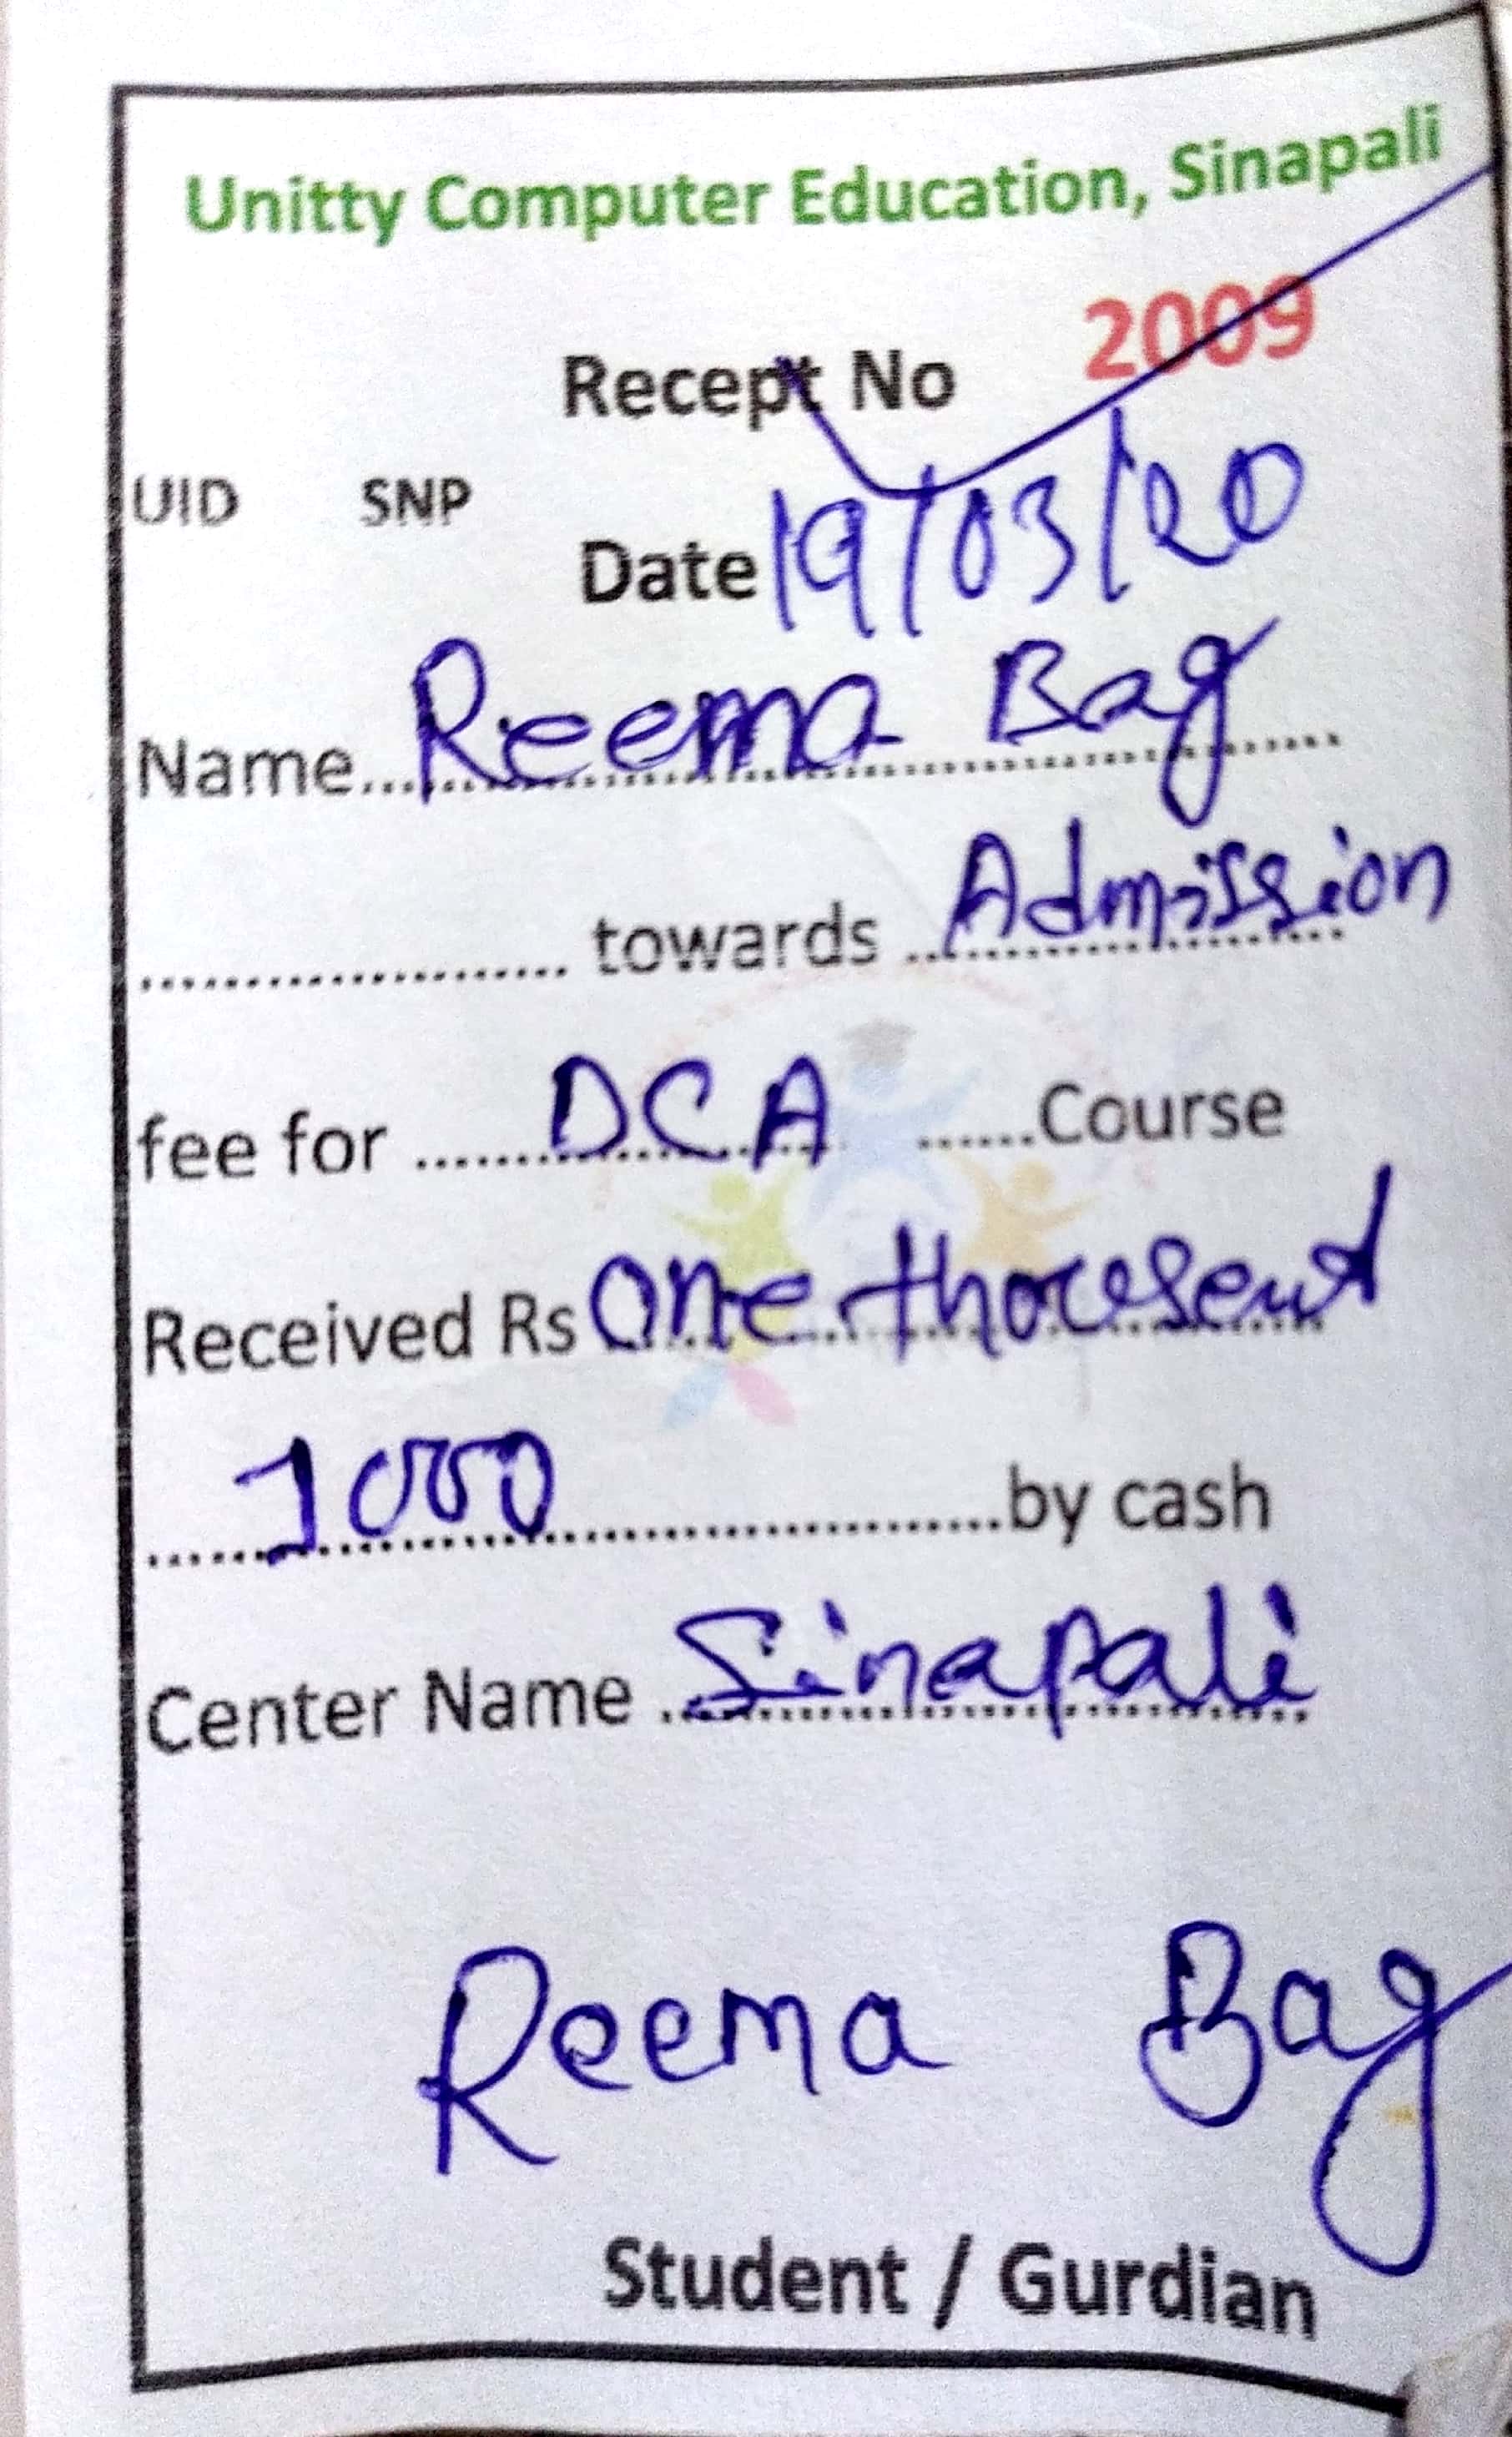 Unitty Computer Education, Sinapali
Recept No 2009
UID SNP
Date 19/03/20
Name....Reema Bag..........
.................... towards ...Admission
fee for ......DCA ......Course
Received Rs One thousend
......1000....................by cash
Center Name ..Sinapali
Reema Bag
Student / Gurdian